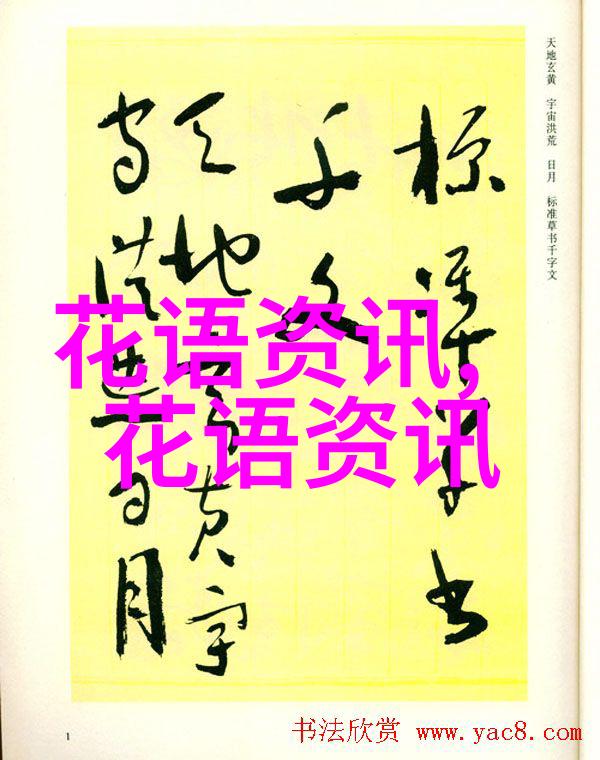 天地玄黄 宇宙洪荒 日月 标准草书千字文
标准草书
千文
天地玄黄宇
宙洪荒日月
花语资讯,
花语资讯
1
书法欣赏 www.yac8.com